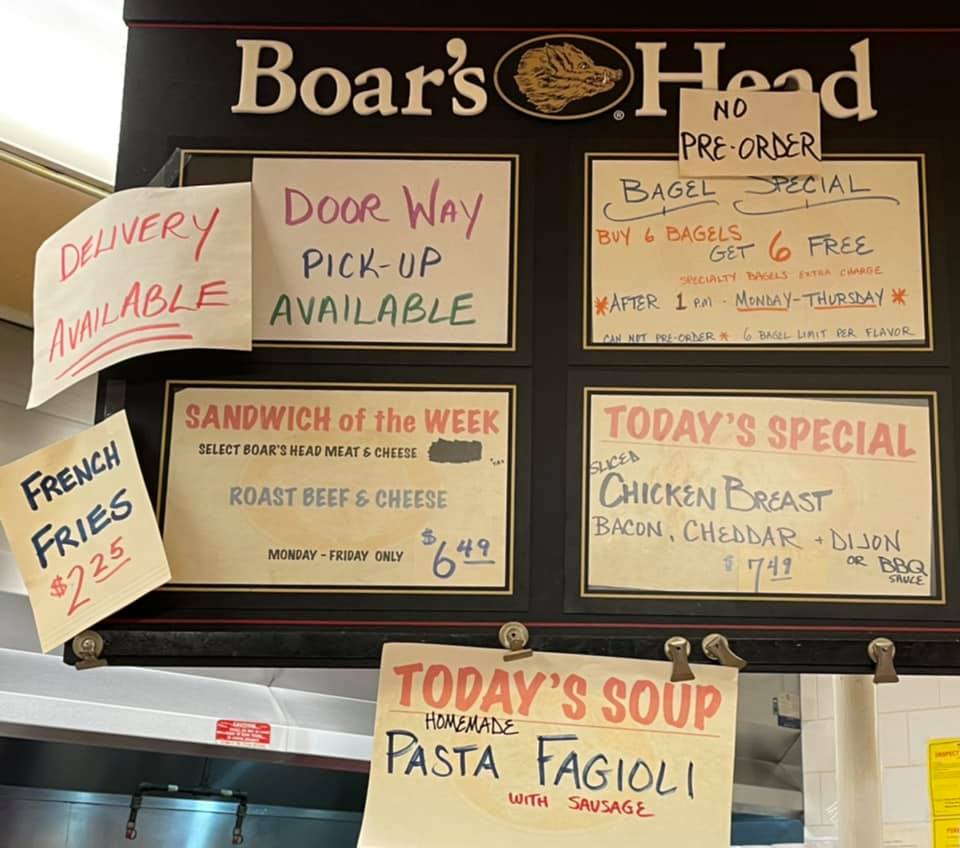 Boar's Head
®
NO
PRE-ORDER
DELIVERY
AVAILABLE
DOOR WAY
PICK-UP
AVAILABLE
BAGEL SPECIAL
BUY 6 BAGELS
GET 6 FREE
SPECIALTY BAGELS EXTRA CHARGE
*AFTER 1 PM - MONDAY-THURSDAY *
CAN NOT PRE-ORDER * 6 BAGEL LIMIT PER FLAVOR
FRENCH
FRIES
$2.25
SANDWICH of the WEEK
SELECT BOAR'S HEAD MEAT & CHEESE
ROAST BEEF & CHEESE
MONDAY - FRIDAY ONLY
$6.49
TODAY'S SPECIAL
SLICED
CHICKEN BREAST
BACON, CHEDDAR + DIJON
OR BBQ
SAUCE
$7.49
TODAY'S SOUP
HOMEMADE
PASTA FAGIOLI
WITH SAUSAGE